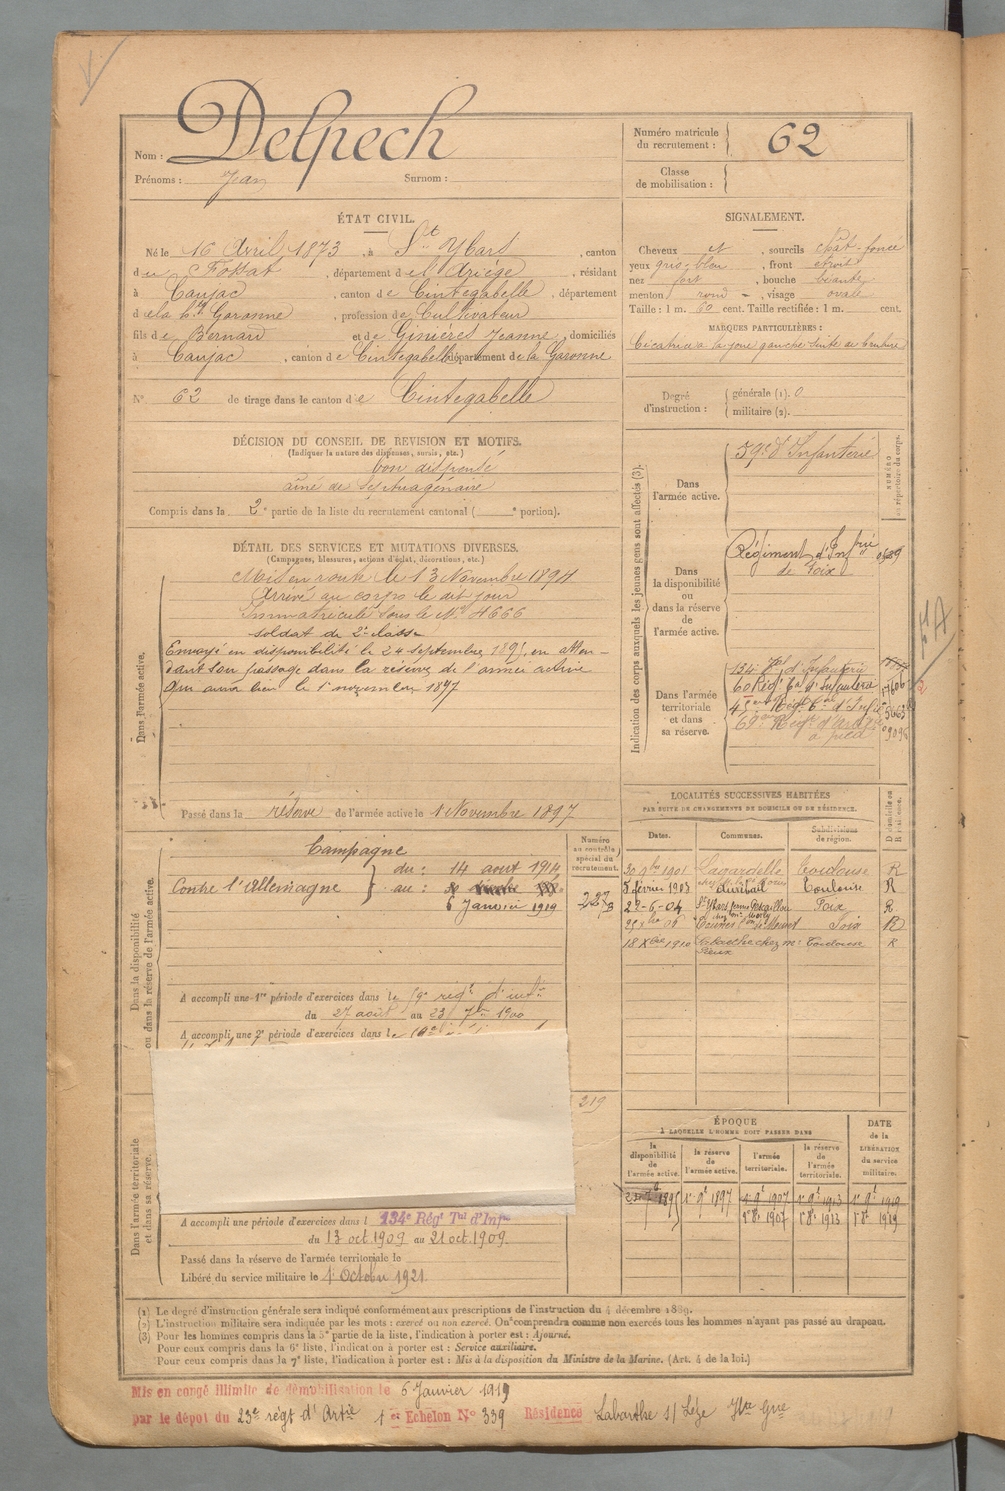 Delpech
Nom :
Prénoms : Jean Surnom :
Numéro matricule
du recrutement : 62
Classe
de mobilisation :
ÉTAT CIVIL.
Né le 16 Avril 1873, à St Ybars, canton
du Fossat, département de l'Ariège, résidant
à Caujac, canton de Cintegabelle, département
de la Hte Garonne, profession de Cultivateur
fils de Bernard et de Ginières Jeanne, domiciliés
à Caujac, canton de Cintegabelle département de la Garonne
N° 62 de tirage dans le canton de Cintegabelle
SIGNALEMENT.
Cheveux et, sourcils chat-foncé
yeux gris-bleu, front étroit
nez fort, bouche béante
menton rond, visage ovale
Taille : 1 m. 60 cent. Taille rectifiée : 1 m. cent.
MARQUES PARTICULIÈRES :
Cicatrice à la joue gauche suite de brulure
Degré
d'instruction :
générale (1). 0
militaire (2).
DÉCISION DU CONSEIL DE REVISION ET MOTIFS.
(Indiquer la nature des dispenses, sursis, etc.)
bon dispensé
aîné de Septuagénaire
Compris dans la 2e partie de la liste du recrutement cantonal ( e portion).
DÉTAIL DES SERVICES ET MUTATIONS DIVERSES.
(Campagnes, blessures, actions d'éclat, décorations, etc.)
Dans l'armée active.
Mis en route le 13 Novembre 1894
Arrivé au corps le dit jour
Immatriculé sous le N° 4666
soldat de 2e classe
Envoyé en disponibilité le 24 septembre 1895, en atten-
dant son passage dans la réserve de l'armée active
qui aura lieu le 1er novembre 1897
Passé dans la réserve de l'armée active le 1 Novembre 1897
Indication des corps auxquels les jeunes gens sont affectés (3).
NUMÉRO
au répertoire du corps.
Dans
l'armée active.
59e d'Infanterie
Dans
la disponibilité
ou
dans la réserve
de
l'armée active.
Régiment d'Infrie
de Foix
Dans l'armée
territoriale
et dans
sa réserve.
134e d'Infanterie
60 Rég d'Infanterie
LOCALITÉS SUCCESSIVES HABITÉES
PAR SUITE DE CHANGEMENTS DE DOMICILE OU DE RÉSIDENCE.
Dates. Communes. Subdivisions
de région. D domicile ou
R résidence.
1901 Lagardelle Toulouse R
5 février 1903 Auribail Toulouse R
22-6-04 St Ybars Foix R
Foix R
1910 Labarthe chez Mr Toulouse R
Dans la disponibilité
ou dans la réserve de l'armée active.
Numéro
au contrôle
spécial du
recrutement.
Campagne
Contre l'Allemagne du : 14 aout 1914
au :
6 Janvier 1919
A accompli une 1re période d'exercices dans le 59e régt d'infie
du 27 août au 23 7bre 1900
A accompli une 2e période d'exercices dans le
219
Dans l'armée territoriale
et dans sa réserve.
A accompli une période d'exercices dans l 134e Régt Tal d'Infie
du 13 oct 1909 au 21 oct. 1909.
Passé dans la réserve de l'armée territoriale le
Libéré du service militaire le 1er Octobre 1921.
ÉPOQUE
À LAQUELLE L'HOMME DOIT PASSER DANS
DATE
de la
LIBÉRATION
du service
militaire.
la
disponibilité
de
l'armée active.
la réserve
de
l'armée active.
l'armée
territoriale.
la réserve
de
l'armée
territoriale.
1895 1er 9bre 1897 1er 9bre 1907 1er 9bre 1913 1er 9bre 1919
1er 8bre 1907 1er 8bre 1913 1er 8bre 1919
(1) Le degré d'instruction générale sera indiqué conformément aux prescriptions de l'instruction du 4 décembre 1889.
(2) L'instruction militaire sera indiquée par les mots : exercé ou non exercé. On comprendra comme non exercés tous les hommes n'ayant pas passé au drapeau.
(3) Pour les hommes compris dans la 5e partie de la liste, l'indication à porter est : Ajourné.
Pour ceux compris dans la 6e liste, l'indication à porter est : Service auxiliaire.
Pour ceux compris dans la 7e liste, l'indication à porter est : Mis à la disposition du Ministre de la Marine. (Art. 4 de la loi.)
Mis en congé illimité de démobilisation le 6 Janvier 1919
par le dépôt du 23e régt d'Artie 1er Echelon N° 339 Résidence Labarthe s/ Lèze Hte Gne